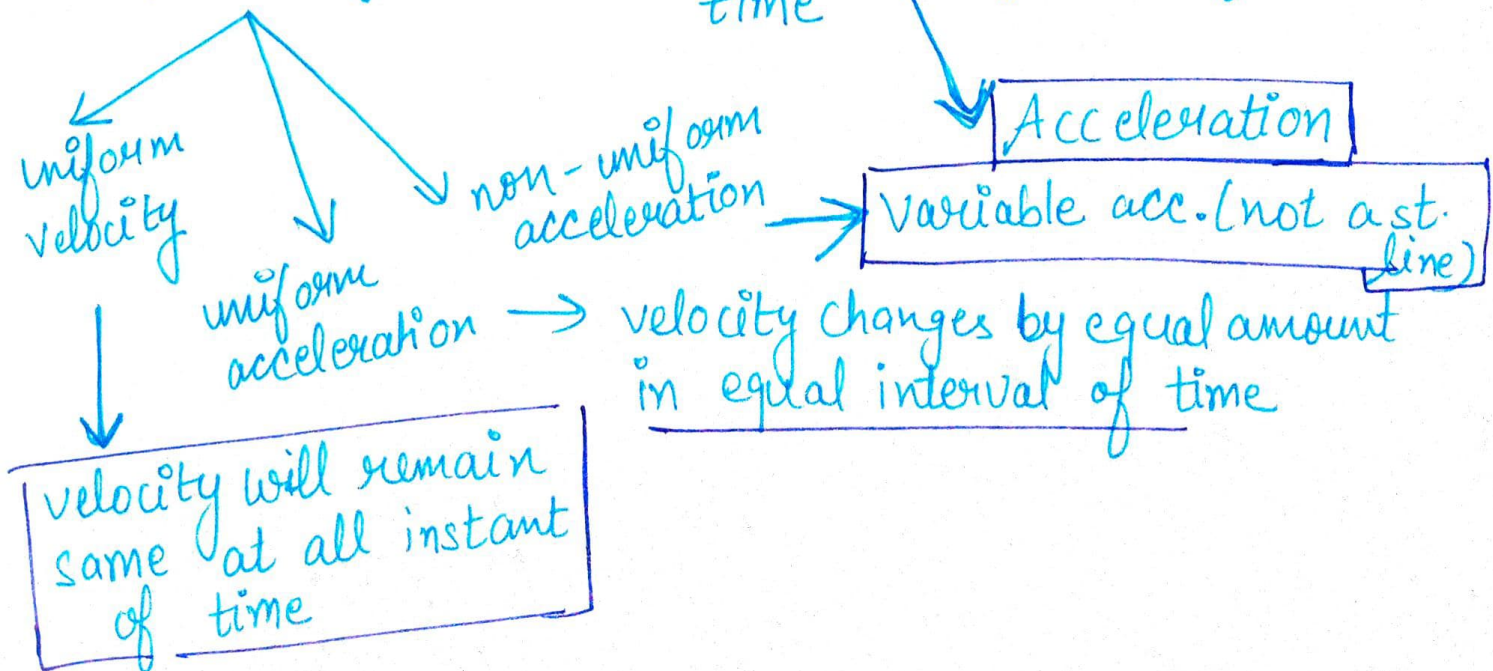 time
Acceleration
uniform
velocity
non-uniform
acceleration
variable acc. (not a st.
line)
uniform
acceleration
velocity changes by equal amount
in equal interval of time
velocity will remain
same at all instant
of time